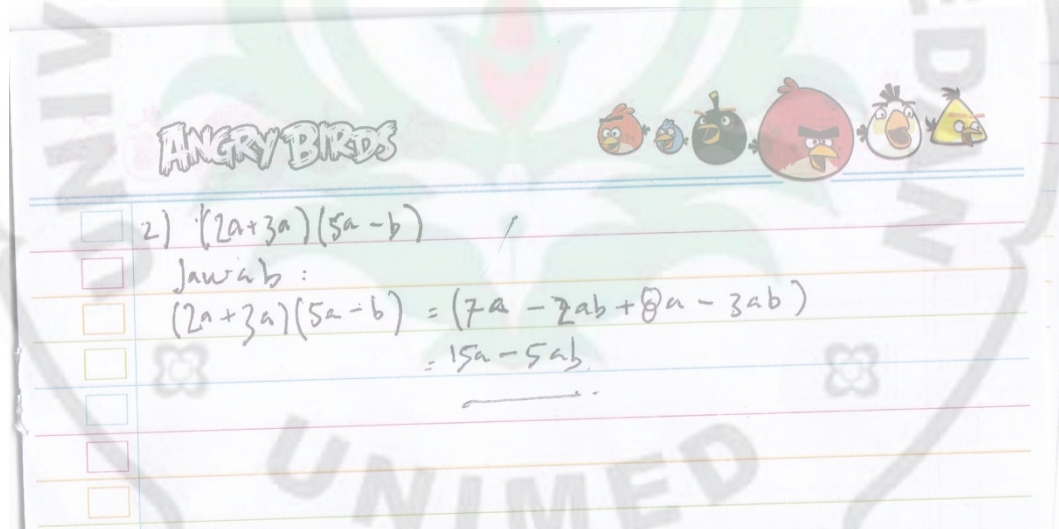 ANGRY BIRDS
2) (2a+3a)(5a-b)
Jawab :
(2a+3a)(5a-b) = (7a - 2ab + 8a - 3ab)
= 15a - 5ab.
UNIMED